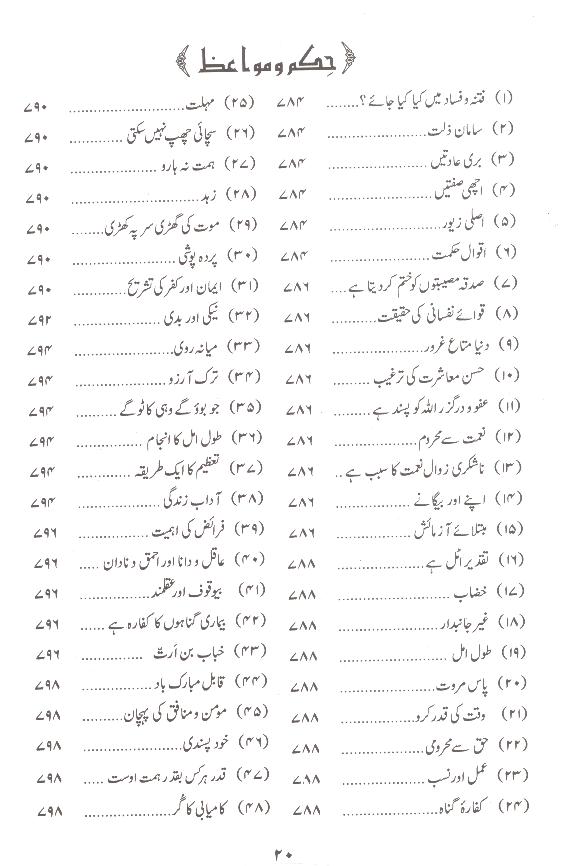 حِکم و مواعظ
(۱) فتنہ و فساد میں کیا کیا جائے؟........ ۷۸۴
(۲) سامان ذلت ........ ۷۸۴
(۳) بری عادتیں ........ ۷۸۴
(۴) اچھی صفتیں ........ ۷۸۴
(۵) اصلی زیور ........ ۷۸۴
(۶) اقوال حکمت ........ ۷۸۴
(۷) صدقہ مصیبتوں کو ختم کر دیتا ہے .... ۷۸۶
(۸) قوائے نفسانی کی حقیقت ........ ۷۸۶
(۹) دنیا متاع غرور ........ ۷۸۶
(۱۰) حسن معاشرت کی ترغیب ........ ۷۸۶
(۱۱) عفو و درگزر اللہ کو پسند ہے ........ ۷۸۶
(۱۲) نعمت سے محروم ........ ۷۸۶
(۱۳) ناشکری زوال نعمت کا سبب ہے .. ۷۸۶
(۱۴) اپنے اور بیگانے ........ ۷۸۶
(۱۵) مبتلائے آزمائش ........ ۷۸۶
(۱۶) تقدیر اٹل ہے ........ ۷۸۸
(۱۷) خضاب ........ ۷۸۸
(۱۸) غیر جانبدار ........ ۷۸۸
(۱۹) طول امل ........ ۷۸۸
(۲۰) پاس مروت ........ ۷۸۸
(۲۱) وقت کی قدر کرو ........ ۷۸۸
(۲۲) حق سے محرومی ........ ۷۸۸
(۲۳) عمل اور نسب ........ ۷۸۸
(۲۴) کفارۂ گناہ ........ ۷۸۸
(۲۵) مہلت ........ ۷۹۰
(۲۶) سچائی چھپ نہیں سکتی ........ ۷۹۰
(۲۷) ہمت نہ ہارو ........ ۷۹۰
(۲۸) زہد ........ ۷۹۰
(۲۹) موت کی گھڑی سر پہ کھڑی ........ ۷۹۰
(۳۰) پردہ پوشی ........ ۷۹۰
(۳۱) ایمان اور کفر کی تشریح ........ ۷۹۰
(۳۲) نیکی اور بدی ........ ۷۹۲
(۳۳) میانہ روی ........ ۷۹۴
(۳۴) ترک آرزو ........ ۷۹۴
(۳۵) جو بوؤ گے وہی کاٹو گے ........ ۷۹۴
(۳۶) طول امل کا انجام ........ ۷۹۴
(۳۷) تعظیم کا ایک طریقہ ........ ۷۹۴
(۳۸) آداب زندگی ........ ۷۹۴
(۳۹) فرائض کی اہمیت ........ ۷۹۶
(۴۰) عاقل و دانا اور احمق و نادان ..... ۷۹۶
(۴۱) بیوقوف اور عقلمند ........ ۷۹۶
(۴۲) بیماری گناہوں کا کفارہ ہے ...... ۷۹۶
(۴۳) خباب بن أرت ........ ۷۹۶
(۴۴) قابل مبارک باد ........ ۷۹۸
(۴۵) مومن و منافق کی پہچان ........ ۷۹۸
(۴۶) خود پسندی ........ ۷۹۸
(۴۷) قدر ہر کس بقدر ہمت اوست ..... ۷۹۸
(۴۸) کامیابی کا گُر ........ ۷۹۸
۲۰